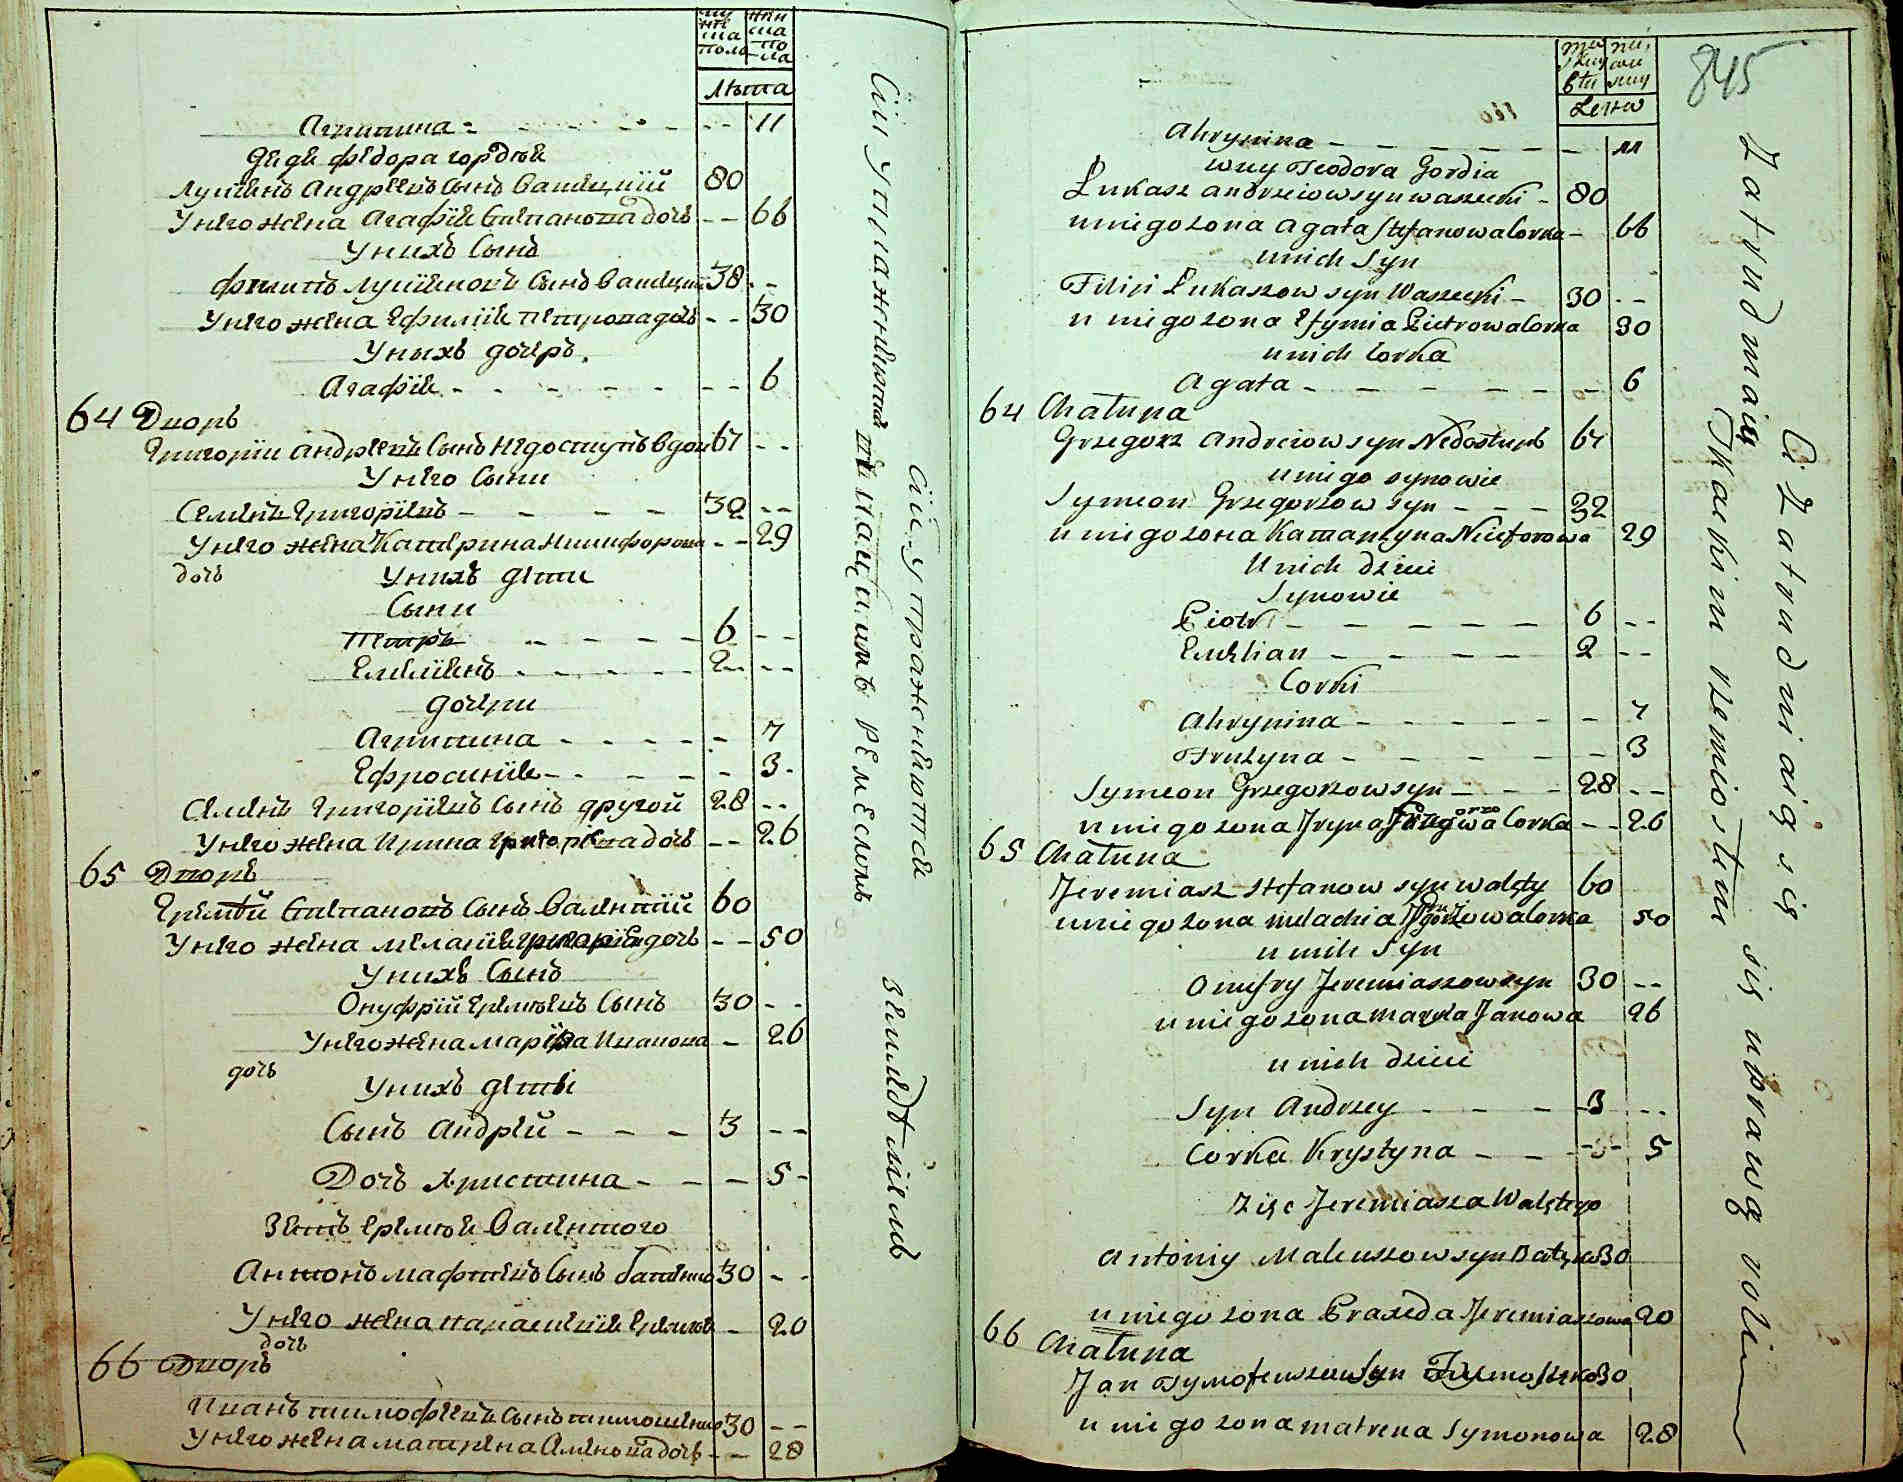 лѣта
Агрипина - - - - - - - 11
дядя фёдора гордѣя
Лукіянъ Андрѣевъ Сынъ Вашецкій 80
У него жена Агафія Степанова дочь - - 66
У нихъ Сынъ
Филипъ Лукіяновъ Сынъ Вашецкій 38 - -
У него жена Ефимія Петрова дочь - - 30
У нихъ дочерь
Агафія - - - - - - - - 6
64 Дворъ
Григорій Андрѣевъ Сынъ Недоступъ вдов 67 - -
У него Сыни
Семенъ Григоріевъ - - - - - 32 - -
У него жена Катерина Никифорова - - 29
дочь У нихъ дѣти
Сыни
Петръ - - - - - 6 - -
Емеліянъ - - - - - 2 - -
дочери
Агрипина - - - - - 7
Ефросинія - - - - - 3 -
Семенъ Григоріевъ Сынъ другой 28 - -
У него жена Ирина Григоріева дочь - - 26
65 Дворъ
Еремѣй Степановъ Сынъ Валентій 60
У него жена Меланія Григоріева дочь - - 50
У нихъ Сынъ
Онуфрій Еремѣевъ Сынъ 30 - -
У него жена Марія Иванова - 26
дочь
У нихъ дѣти
Сынъ Андрей - - - 3 - -
Дочь Христина - - - 5 -
Зять Еремѣя Валентого
Антонъ Мафтеевъ Сынъ 30 - -
У него жена Параскевія Еремѣев - 20
дочь
66 Дворъ
Иванъ Тимофѣевъ Сынъ Тимошенко 30 - -
У него жена Матрена Семенова дочь - - 28
Сіи упражняются ткацкимъ ремесломъ
Сіи упражняются земледѣліемъ
845
Leta
Ahrypina - - - - - - - 11
wuy Teodora Gordia
Łukasz Andrzeiow syn Waszecki - 80
u niego zona Agata Stefanowa Corka - 66
u nich Syn
Filip Łukaszow syn Waszecki - 30 - -
u niego zona Efymia Pietrowa Corka 30
u nich Corka
Agata - - - - - - - 6
64 Chałupa
Grzegorz Andreiow syn Nedostupb 67
u niego synowie
Symeon Grzegorzow syn - - - 32
u niego zona Katarzyna Niceforowa 29
U nich dzieci
Synowie
Piotr - - - - - - 6 - -
Emilian - - - - 2 - -
Corki
Ahrypina - - - - - - 7
Fruzyna - - - - - - 3
Symeon Grzegorzow syn - - - 28 - -
u niego zona Iryna Corka - - 26
65 Chałupa
Jeremiasz Stefanow syn Walęty 60
u niego zona Melachia Corka 50
u nich Syn
Onifry Jeremiaszow syn 30 - -
u niego zona Maryia Janowa 26
u nich dzieci
Syn Andrzey - - - - 3 - -
Corka Krystyna - - - - - 5
Zięc Jeremiasza Walętego
Antoniy Mateuszow syn 30
u niego zona Praxeda Jeremiaszowa 20
66 Chałupa
Jan Tymofeuszow Syn Tymoszenko 30
u niego zona Matrena Symonowa 28
Zatrudniaią Tkackim rzemiosłem
Ci Zatrudniaią się
się uprawą rolą